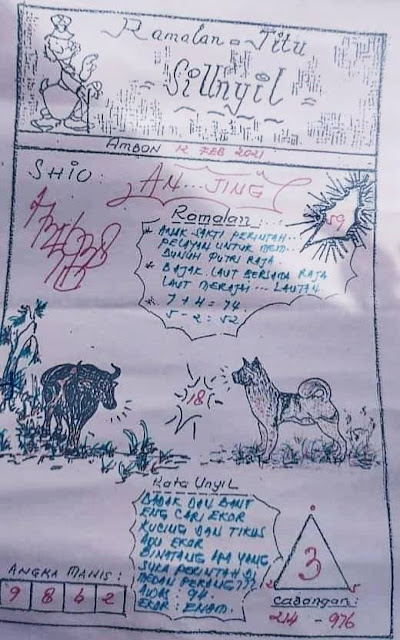 Ramalan = Titu
SiUnyil
AMBON 12 FEB 2021
SHIO: AN...JING
59
Ramalan:
* ANAK SAKTI PERINTAH...
PELAYAN UNTUK MEM-
BUNUH PUTRI RAJA.
* BAJAK LAUT BERSAMA RAJA
LAUT MERAJAI... LAUTAN.
* 7 + 4 = 74.
5 - 2 = 52
18
Kata UnyiL
BADAK DAN BAUT
ENG CARI EKOR
KUCING DAN TIKUS
ADU EKOR
BINTANG APA YANG
SUKA PERINTAH DI
MEDAN PERANG???
AWAS: 94.
EKOR: ENAM.
ANGKA MANIS:
9 8 6 2
3
CABANGAN:
214 - 976